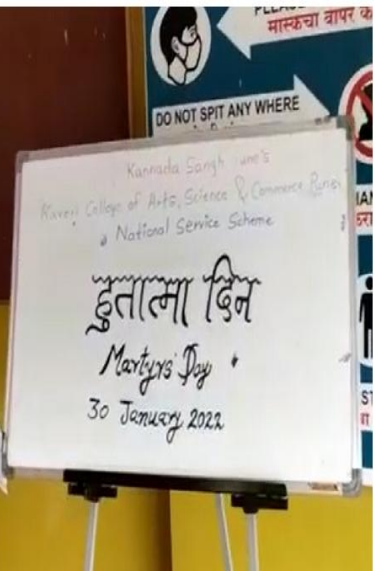 मास्कचा वापर क
DO NOT SPIT ANY WHERE
Kannada Sangh une's
Kaveri College of Arts, Science & Commerce
National Service Scheme
हुतात्मा दिन
Martyrs' Day
30 January 2022